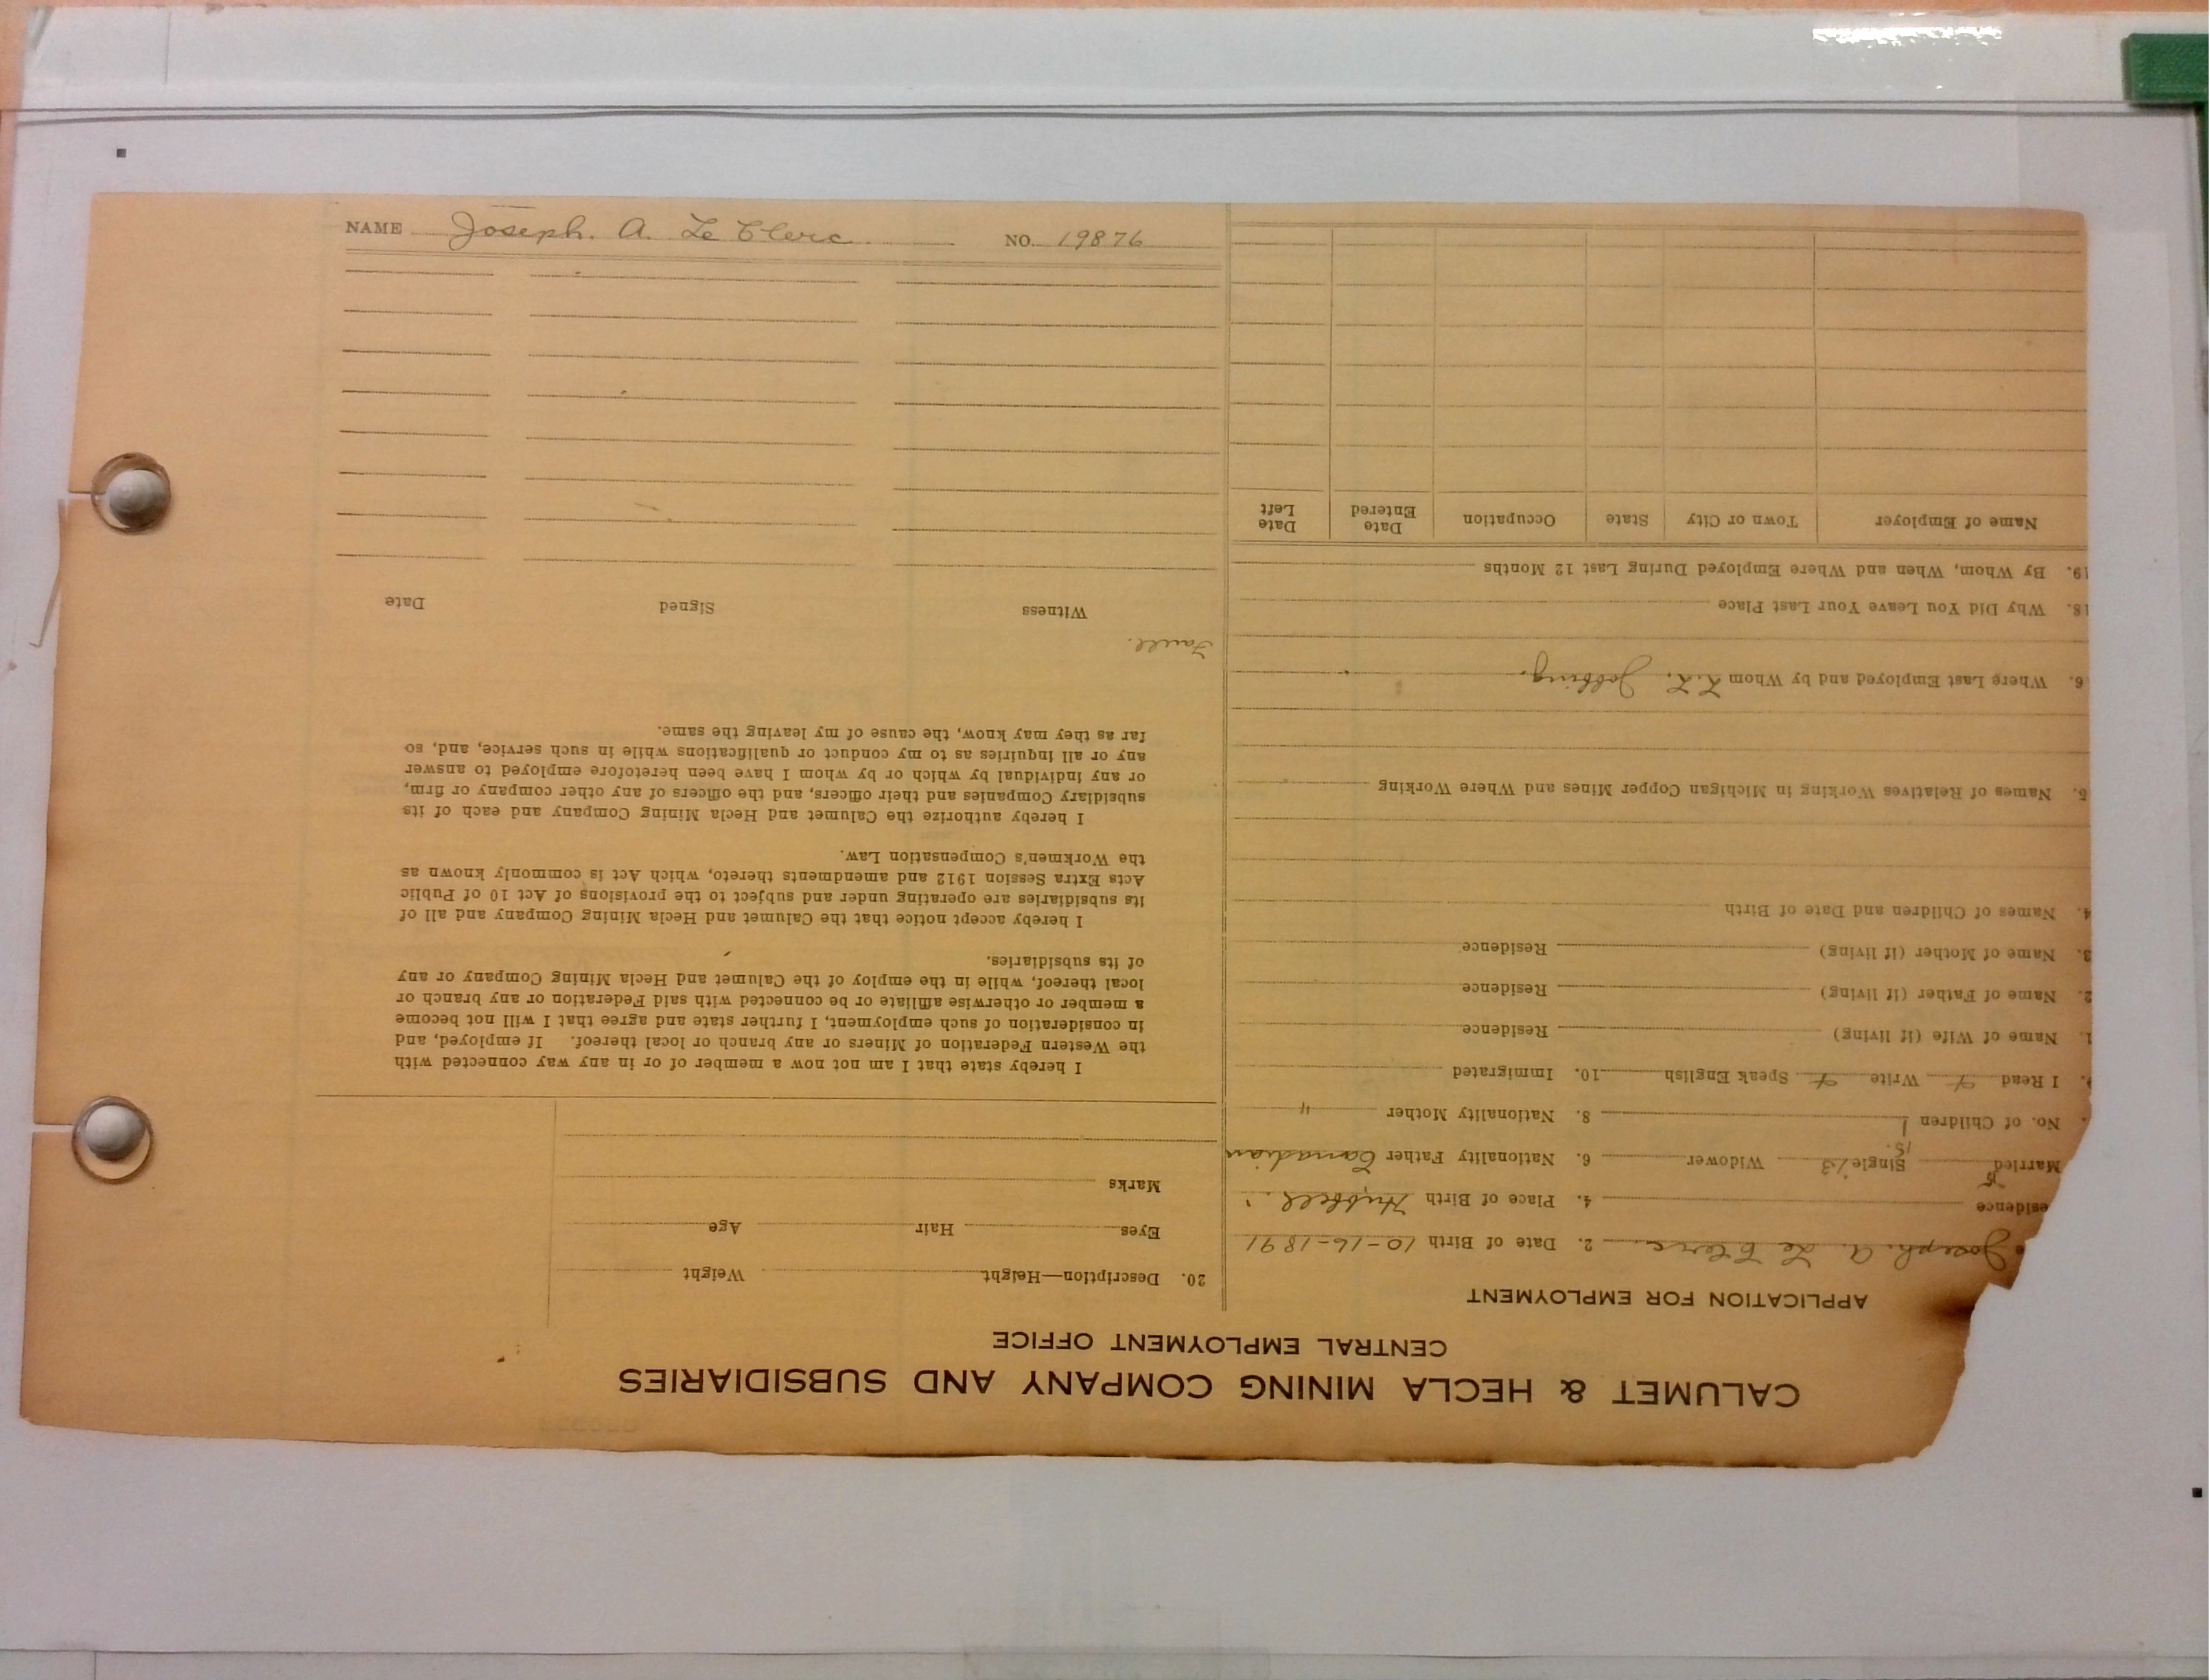 NAME Joseph. A. Le Clerc. NO. 19876
CALUMET & HECLA MINING COMPANY AND SUBSIDIARIES
CENTRAL EMPLOYMENT OFFICE
APPLICATION FOR EMPLOYMENT
Joseph. A. Le Clerc. 2. Date of Birth 10-16-1891
esidence 4. Place of Birth Hubbell.
Married Single Widower 6. Nationality Father Canadian
No. of Children 1 8. Nationality Mother "
I Read Write Speak English 10. Immigrated
1. Name of Wife (if living) Residence
2. Name of Father (if living) Residence
3. Name of Mother (if living) Residence
4. Names of Children and Date of Birth
5. Names of Relatives Working in Michigan Copper Mines and Where Working
6. Where Last Employed and by Whom Jobbing.
18. Why Did You Leave Your Last Place
19. By Whom, When and Where Employed During Last 12 Months
Name of Employer Town or City State Occupation Date Entered Date Left
20. Description—Height Weight
Eyes Hair Age
Marks
I hereby state that I am not now a member of or in any way connected with
the Western Federation of Miners or any branch or local thereof. If employed, and
in consideration of such employment, I further state and agree that I will not become
a member or otherwise affiliate or be connected with said Federation or any branch or
local thereof, while in the employ of the Calumet and Hecla Mining Company or any
of its subsidiaries.
I hereby accept notice that the Calumet and Hecla Mining Company and all of
its subsidiaries are operating under and subject to the provisions of Act 10 of Public
Acts Extra Session 1912 and amendments thereto, which Act is commonly known as
the Workmen's Compensation Law.
I hereby authorize the Calumet and Hecla Mining Company and each of its
subsidiary Companies and their officers, and the officers of any other company or firm,
or any individual by which or by whom I have been heretofore employed to answer
any or all inquiries as to my conduct or qualifications while in such service, and, so
far as they may know, the cause of my leaving the same.
Witness Signed Date